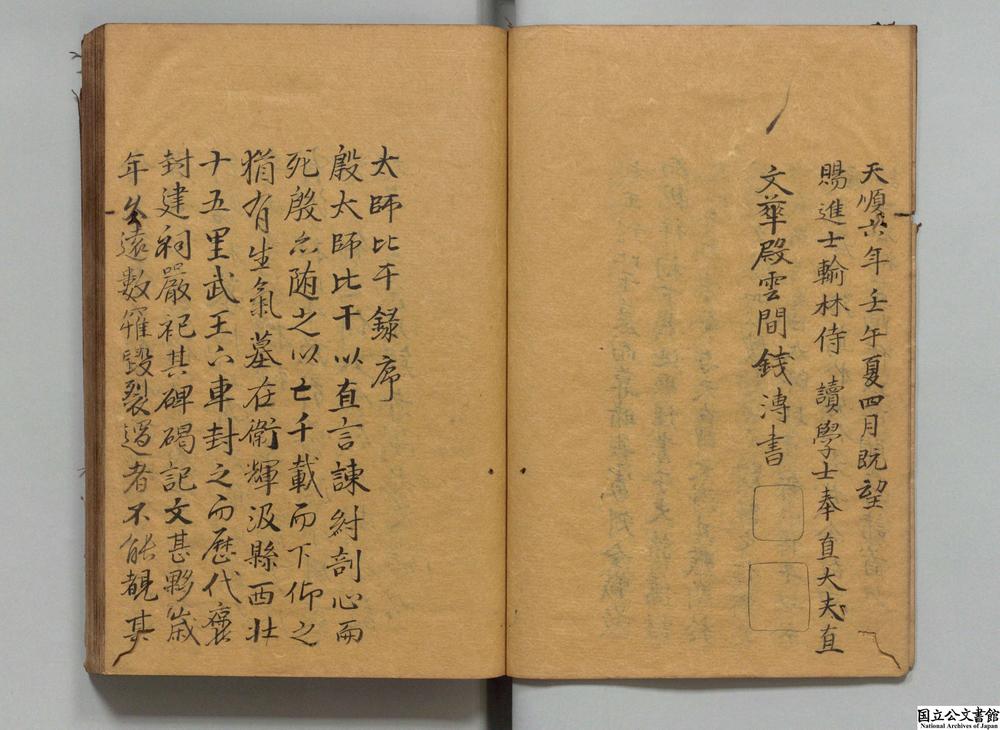 天順六年壬午夏四月既望
賜進士翰林侍　讀學士奉直大夫直
文華殿雲間錢溥書
太師比干錄序
殷太師比干以直言諫紂剖心而
死殷亦随之以亡千載而下仰之
猶有生氣墓在衛輝汲縣西北
十五里武王下車封之而歴代襃
封建祠嚴祀其碑碣記文甚夥歳
年久遠數罹毀裂過者不能覩其
国立公文書館
National Archives of Japan